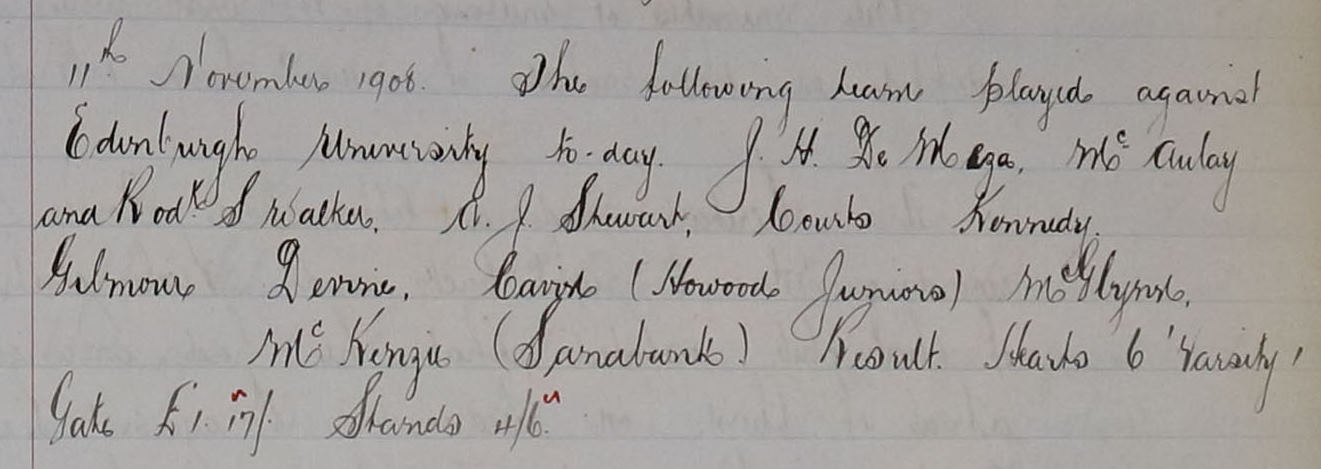 11th November 1908. The following team played against
Edinburgh University to-day. J. H. De Mega, Mc Aulay
and Rodk S Walker, A. J. Stewart, Courts Kennedy.
Gilmour Devine, Cavin (Howood Juniors) McGlynn,
Mc Kenzie (Sanabank) Result. Hearts 6 'Varsity 1
Gate £1.17/. Stands 4/6.